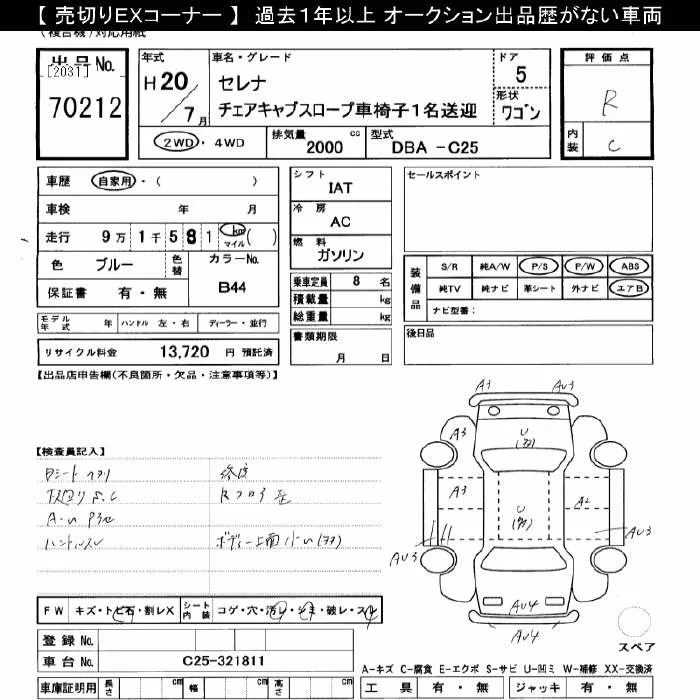 【 売切りEXコーナー 】 過去１年以上 オークション出品歴がない車両
(複合機)対応用紙
出品No.
[2031]
70212
年式
H20/7月
車名・グレード
セレナ
チェアキャブスロープ車椅子１名送迎
ドア
5
形状
ワゴン
2WD・4WD
排気量 cc
2000
型式
DBA -C25
評価点
R
内装
C
車歴 自家用・( )
車検 年 月
走行 9万1千581km マイル( )
色 ブルー 色替 カラーNo. B44
保証書 有・無
モデル年式 年 ハンドル 左・右 ディーラー・並行
リサイクル料金 13,720 円 預託済
シフト
IAT
冷房
AC
燃料
ガソリン
乗車定員 8 名
積載量 kg
総重量 kg
書類期限
月 日
セールスポイント
装備品
S/R 純A/W P/S P/W ABS
純TV 純ナビ 革シート 外ナビ エアB
ナビ型番：
後日品
【出品店申告欄(不良箇所・欠品・注意事項等)】
【検査員記入】
ハンドルスレ
A3 AU3
A3
U
A3 A2
U
AU3 AU3
AU4
AU4
FW キズ・トビ石・割レX シート内装 コゲ・穴・汚レ・シミ・破レ・スレ
登録 No.
車台 No. C25-321811
車庫証明用 長さ cm 幅 cm 高さ cm
スペア
A-キズ C-腐食 E-エクボ S-サビ U-凹ミ W-補修 XX-交換済
工具 有・無 ジャッキ 有・無